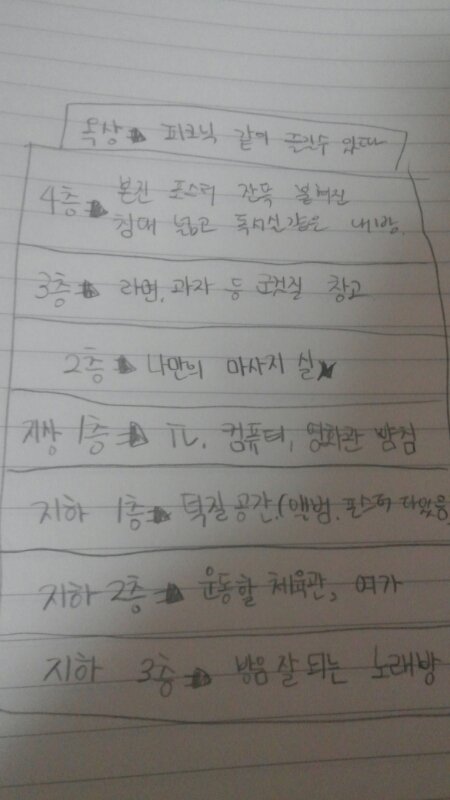 옥상 ➡ 피크닉 같이 즐길수 있다
4층 ➡ 본진 포스터 잔뜩 붙혀진
침대 넓고 독서실같은 내방.
3층 ➡ 라면, 과자 등 군것질 창고
2층 ➡ 나만의 마사지 실
지상 1층 ➡ TV, 컴퓨터, 영화관 방침
지하 1층 ➡ 덕질공간.(앨범.포스터 다있음
지하 2층 ➡ 운동할 체육관, 여가
지하 3층 ➡ 방음 잘 되는 노래방